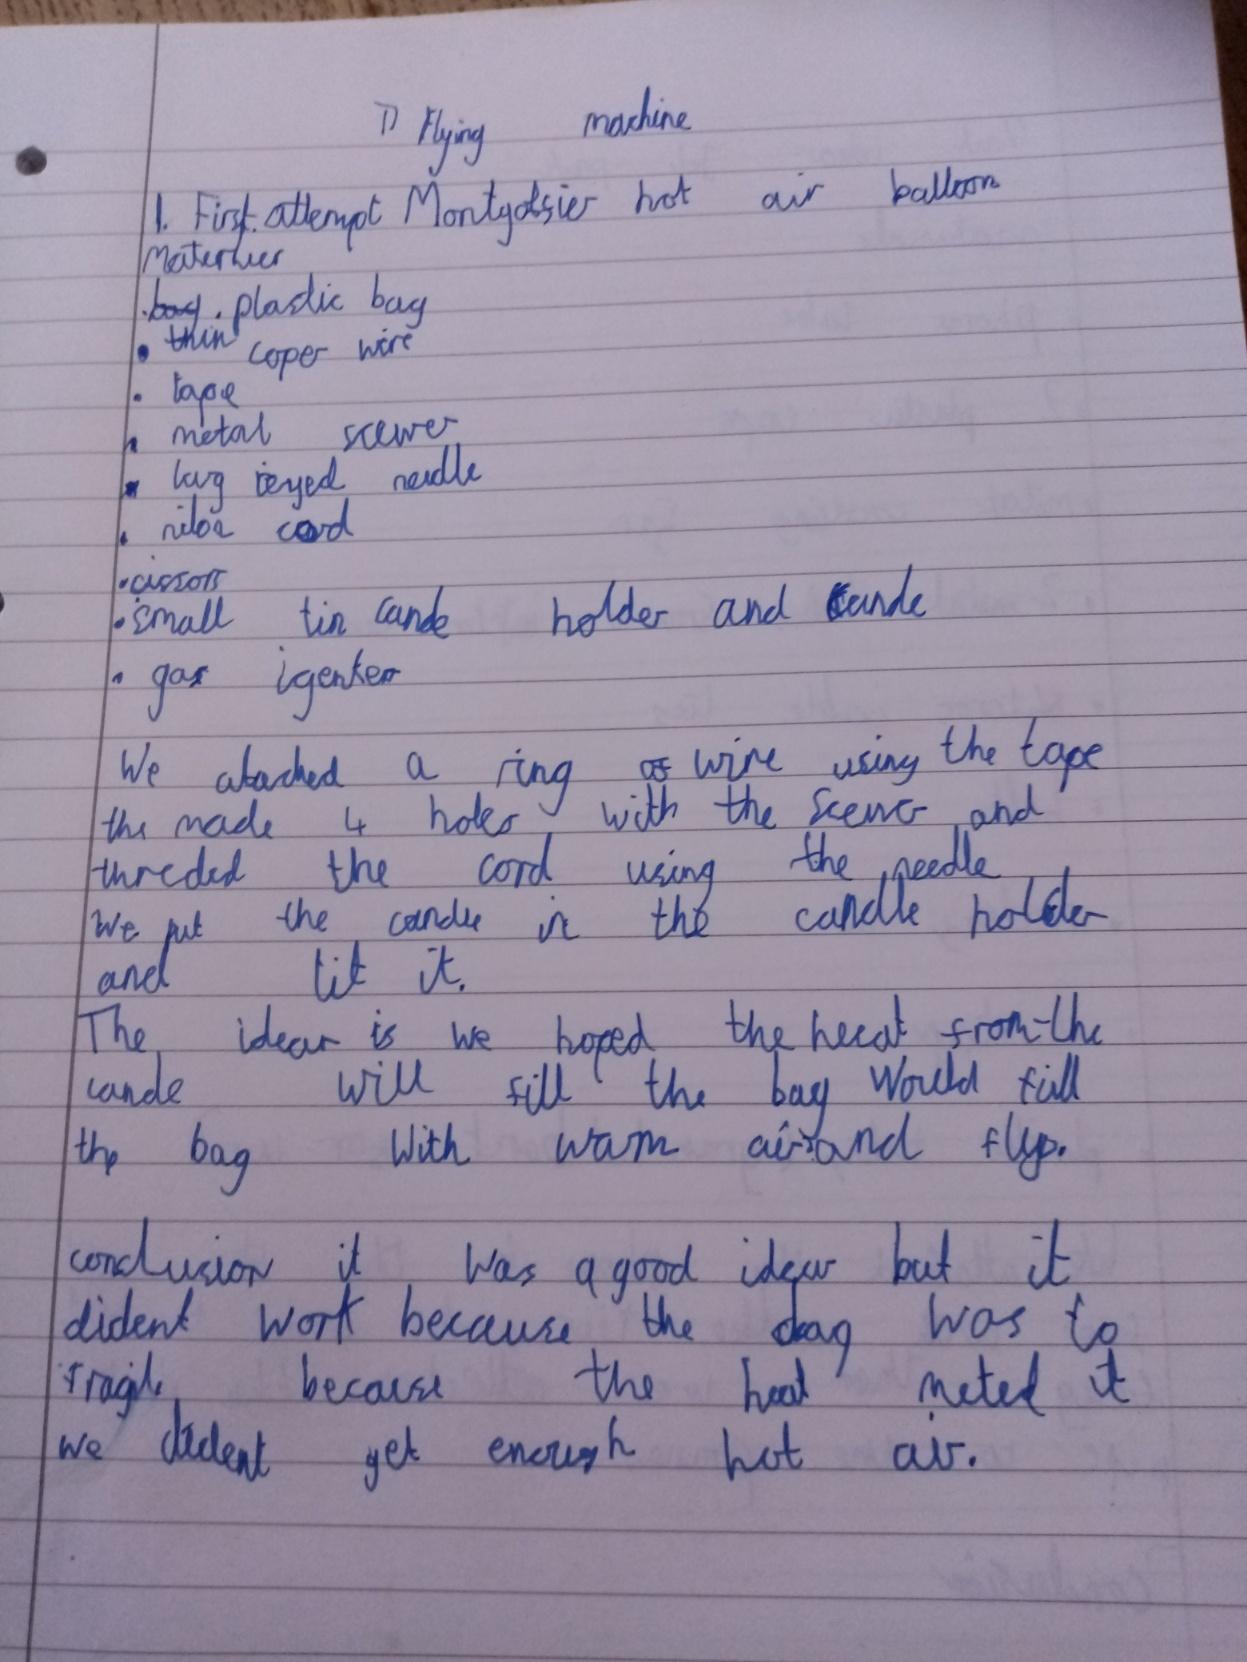 1) Flying machine
1. First attempt Montgolsier hot air balloon
Materlier
. plastic bag
• thin coper wire
. tape
. metal scewer
. larg eyed needle
. cord
. cissors
. small tin cande holder and cande
. gas igenter
We atached a ring of wire using the tape
the made 4 holes with the scewer and
threded the cord using the needle
We put the candle in the candle holder
and lit it.
The idear is we hoped the heat from the
cande will fill the bag would fill
the bag with warm air and fly.
conclusion it was a good idear but it
dident work because the bag was to
fragile because the heat melted it
we dident get enough hot air.